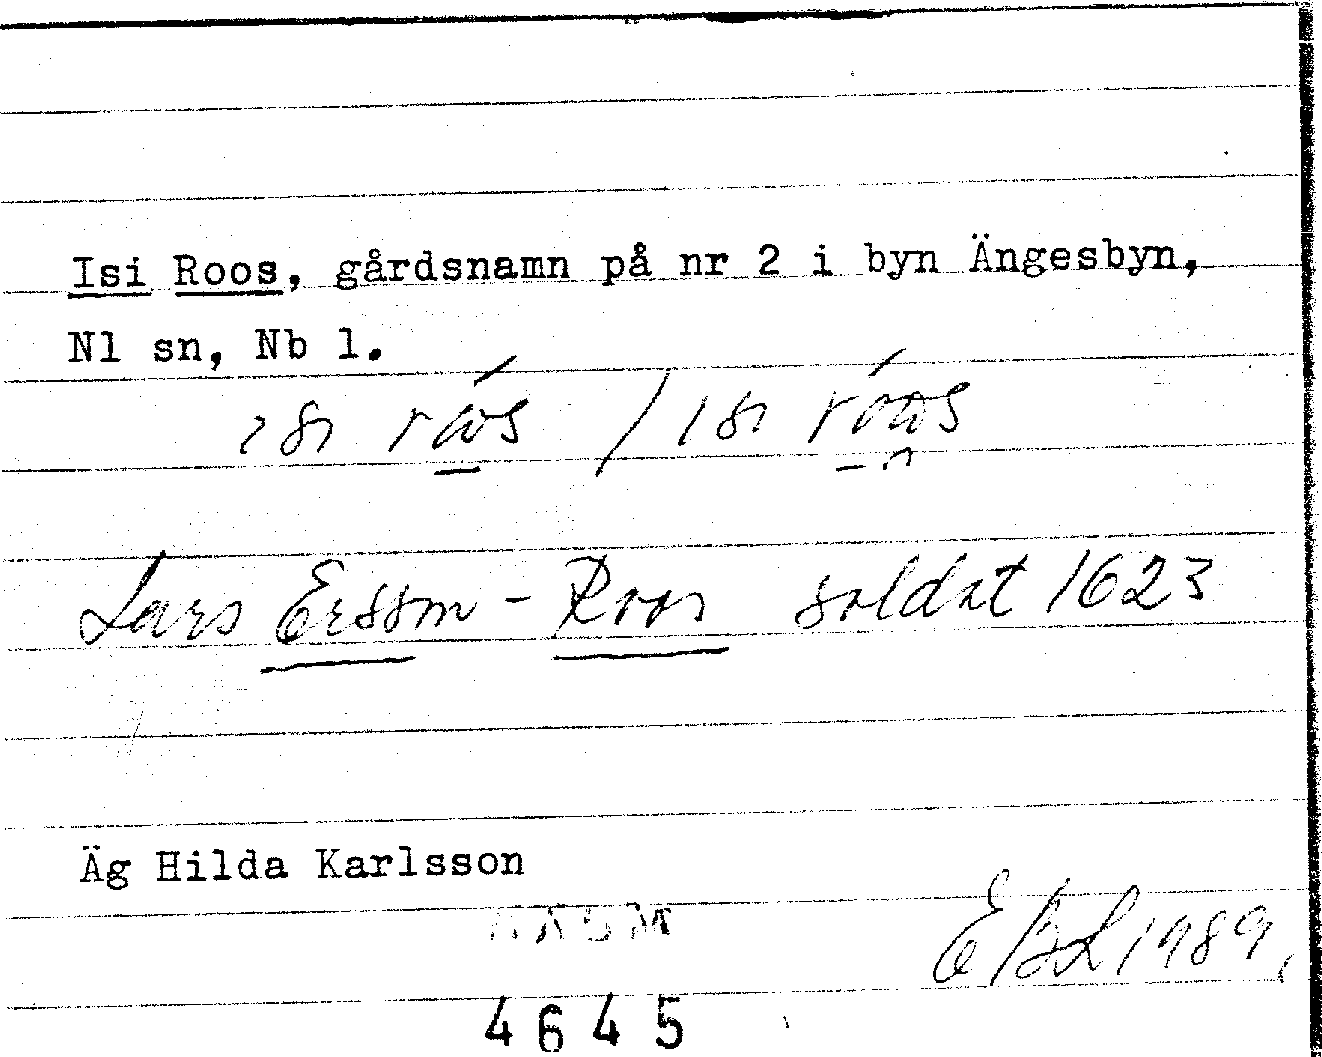 Isi Roos, gårdsnamn på nr 2 i byn Ängesbyn,
Nl sn, Nb l.
isi / isi
Lars Ersson - Roos soldat 1623
Äg Hilda Karlsson
EBL 1989
4645